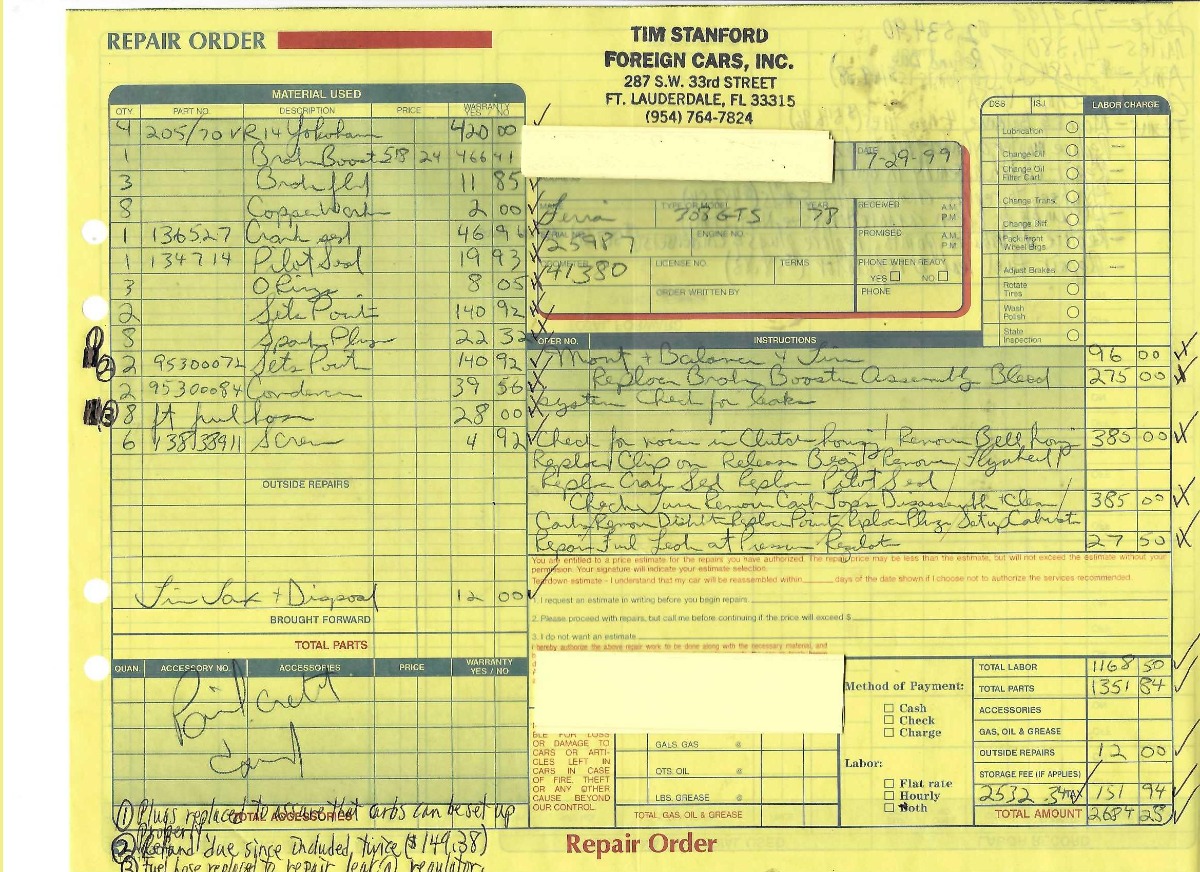 REPAIR ORDER
TIM STANFORD
FOREIGN CARS, INC.
287 S.W. 33rd STREET
FT. LAUDERDALE, FL 33315
(954) 764-7824
MATERIAL USED
QTY PART NO. DESCRIPTION PRICE WARRANTY YES / NO
4 205/70 VR14 Yokoham 420 00
1 Brak Boost 518 24 466 41
3 Brak fld 11 85
8 Copper Wash 2 00
1 136527 Crank Seal 46 96
1 134714 Pilot Seal 19 93
3 O Rings 8 05
2 Sets Points 140 92
8 Spark Plugs 22 32
2 2 95300072 Sets Point 140 92
2 95300084 Condenser 39 56
3 8 ft fuel hose 28 00
6 13838911 Screw 4 92
OUTSIDE REPAIRS
Tire Tax + Disposal 12 00
BROUGHT FORWARD
TOTAL PARTS
QUAN. ACCESSORY NO. ACCESSORIES PRICE WARRANTY YES / NO
Paid Credit
Card
TOTAL ACCESSORIES
1 Plugs replaced to assure that carbs can be set up
properly
2 Refund due since included, twice ($149.38)
3 Fuel hose replaced to repair leak at regulator.
DATE 7-29-99
MAKE TYPE OR MODEL YEAR
Ferrari 308 GTS 78
SERIAL NO. ENGINE NO.
25987
ODOMETER LICENSE NO. TERMS
41380
ORDER WRITTEN BY
RECEIVED A.M. P.M.
PROMISED A.M. P.M.
PHONE WHEN READY
YES NO
PHONE
DSS ISJ LABOR CHARGE
Lubrication
Change Oil
Change Oil Filter Cart.
Change Trans.
Change Diff.
Pack Front Wheel Brgs.
Adjust Brakes
Rotate Tires
Wash Polish
State Inspection
ORDER NO. INSTRUCTIONS
Mont + Balance 4 Tire 96 00
Replace Brak Booster Assembly Bleed 275 00
system Check for leaks
Check for noise in Clutch housing Remove Bell housing 385 00
Replace Clip on Release Bearing Remove Flywheel
Replace Crank Seal Replace Pilot Seal
Check Tune Remove Carb Tops Disassemble + Clean 385 00
Carbs Remove Distributor Replace Points Replace Plugs Set up Carburetor
Repair Fuel Leak at Pressure Regulator 27 50
You are entitled to a price estimate for the repairs you have authorized. The repair price may be less than the estimate, but will not exceed the estimate without your
permission. Your signature will indicate your estimate selection.
Teardown estimate - I understand that my car will be reassembled within ____ days of the date shown if I choose not to authorize the services recommended.
1. I request an estimate in writing before you begin repairs
2. Please proceed with repairs, but call me before continuing if the price will exceed $
3. I do not want an estimate
I hereby authorize the above repair work to be done along with the necessary material, and
BLE FOR LOSS
OR DAMAGE TO
CARS OR ARTI-
CLES LEFT IN
CARS IN CASE
OF FIRE, THEFT
OR ANY OTHER
CAUSE BEYOND
OUR CONTROL
GALS. GAS @
QTS. OIL @
LBS. GREASE @
TOTAL GAS, OIL & GREASE
Method of Payment:
Cash
Check
Charge
Labor:
Flat rate
Hourly
Both
TOTAL LABOR 1168 50
TOTAL PARTS 1351 84
ACCESSORIES
GAS, OIL & GREASE
OUTSIDE REPAIRS 12 00
STORAGE FEE (IF APPLIES)
2532 34 TAX 151 94
TOTAL AMOUNT 2684 28
Repair Order